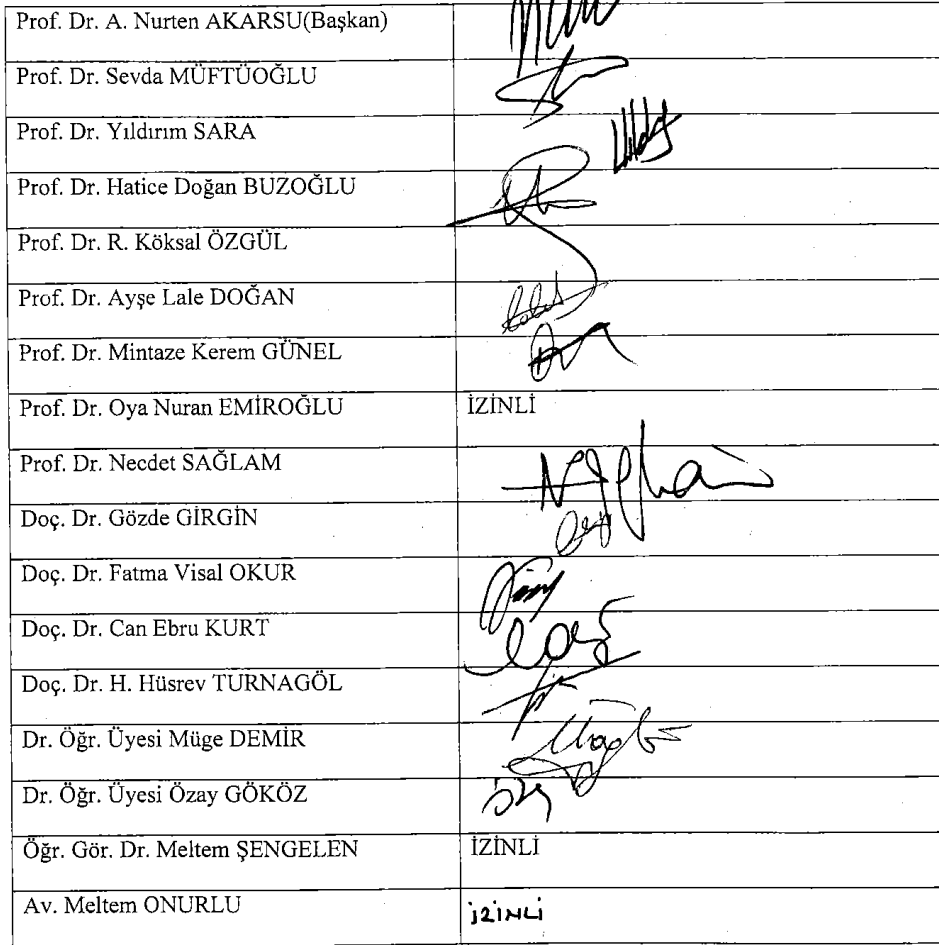 Prof. Dr. A. Nurten AKARSU(Başkan)
Prof. Dr. Sevda MÜFTÜOĞLU
Prof. Dr. Yıldırım SARA
Prof. Dr. Hatice Doğan BUZOĞLU
Prof. Dr. R. Köksal ÖZGÜL
Prof. Dr. Ayşe Lale DOĞAN
Prof. Dr. Mintaze Kerem GÜNEL
Prof. Dr. Oya Nuran EMİROĞLU İZİNLİ
Prof. Dr. Necdet SAĞLAM
Doç. Dr. Gözde GİRGİN
Doç. Dr. Fatma Visal OKUR
Doç. Dr. Can Ebru KURT
Doç. Dr. H. Hüsrev TURNAGÖL
Dr. Öğr. Üyesi Müge DEMİR
Dr. Öğr. Üyesi Özay GÖKÖZ
Öğr. Gör. Dr. Meltem ŞENGELEN İZİNLİ
Av. Meltem ONURLU İZİNLİ